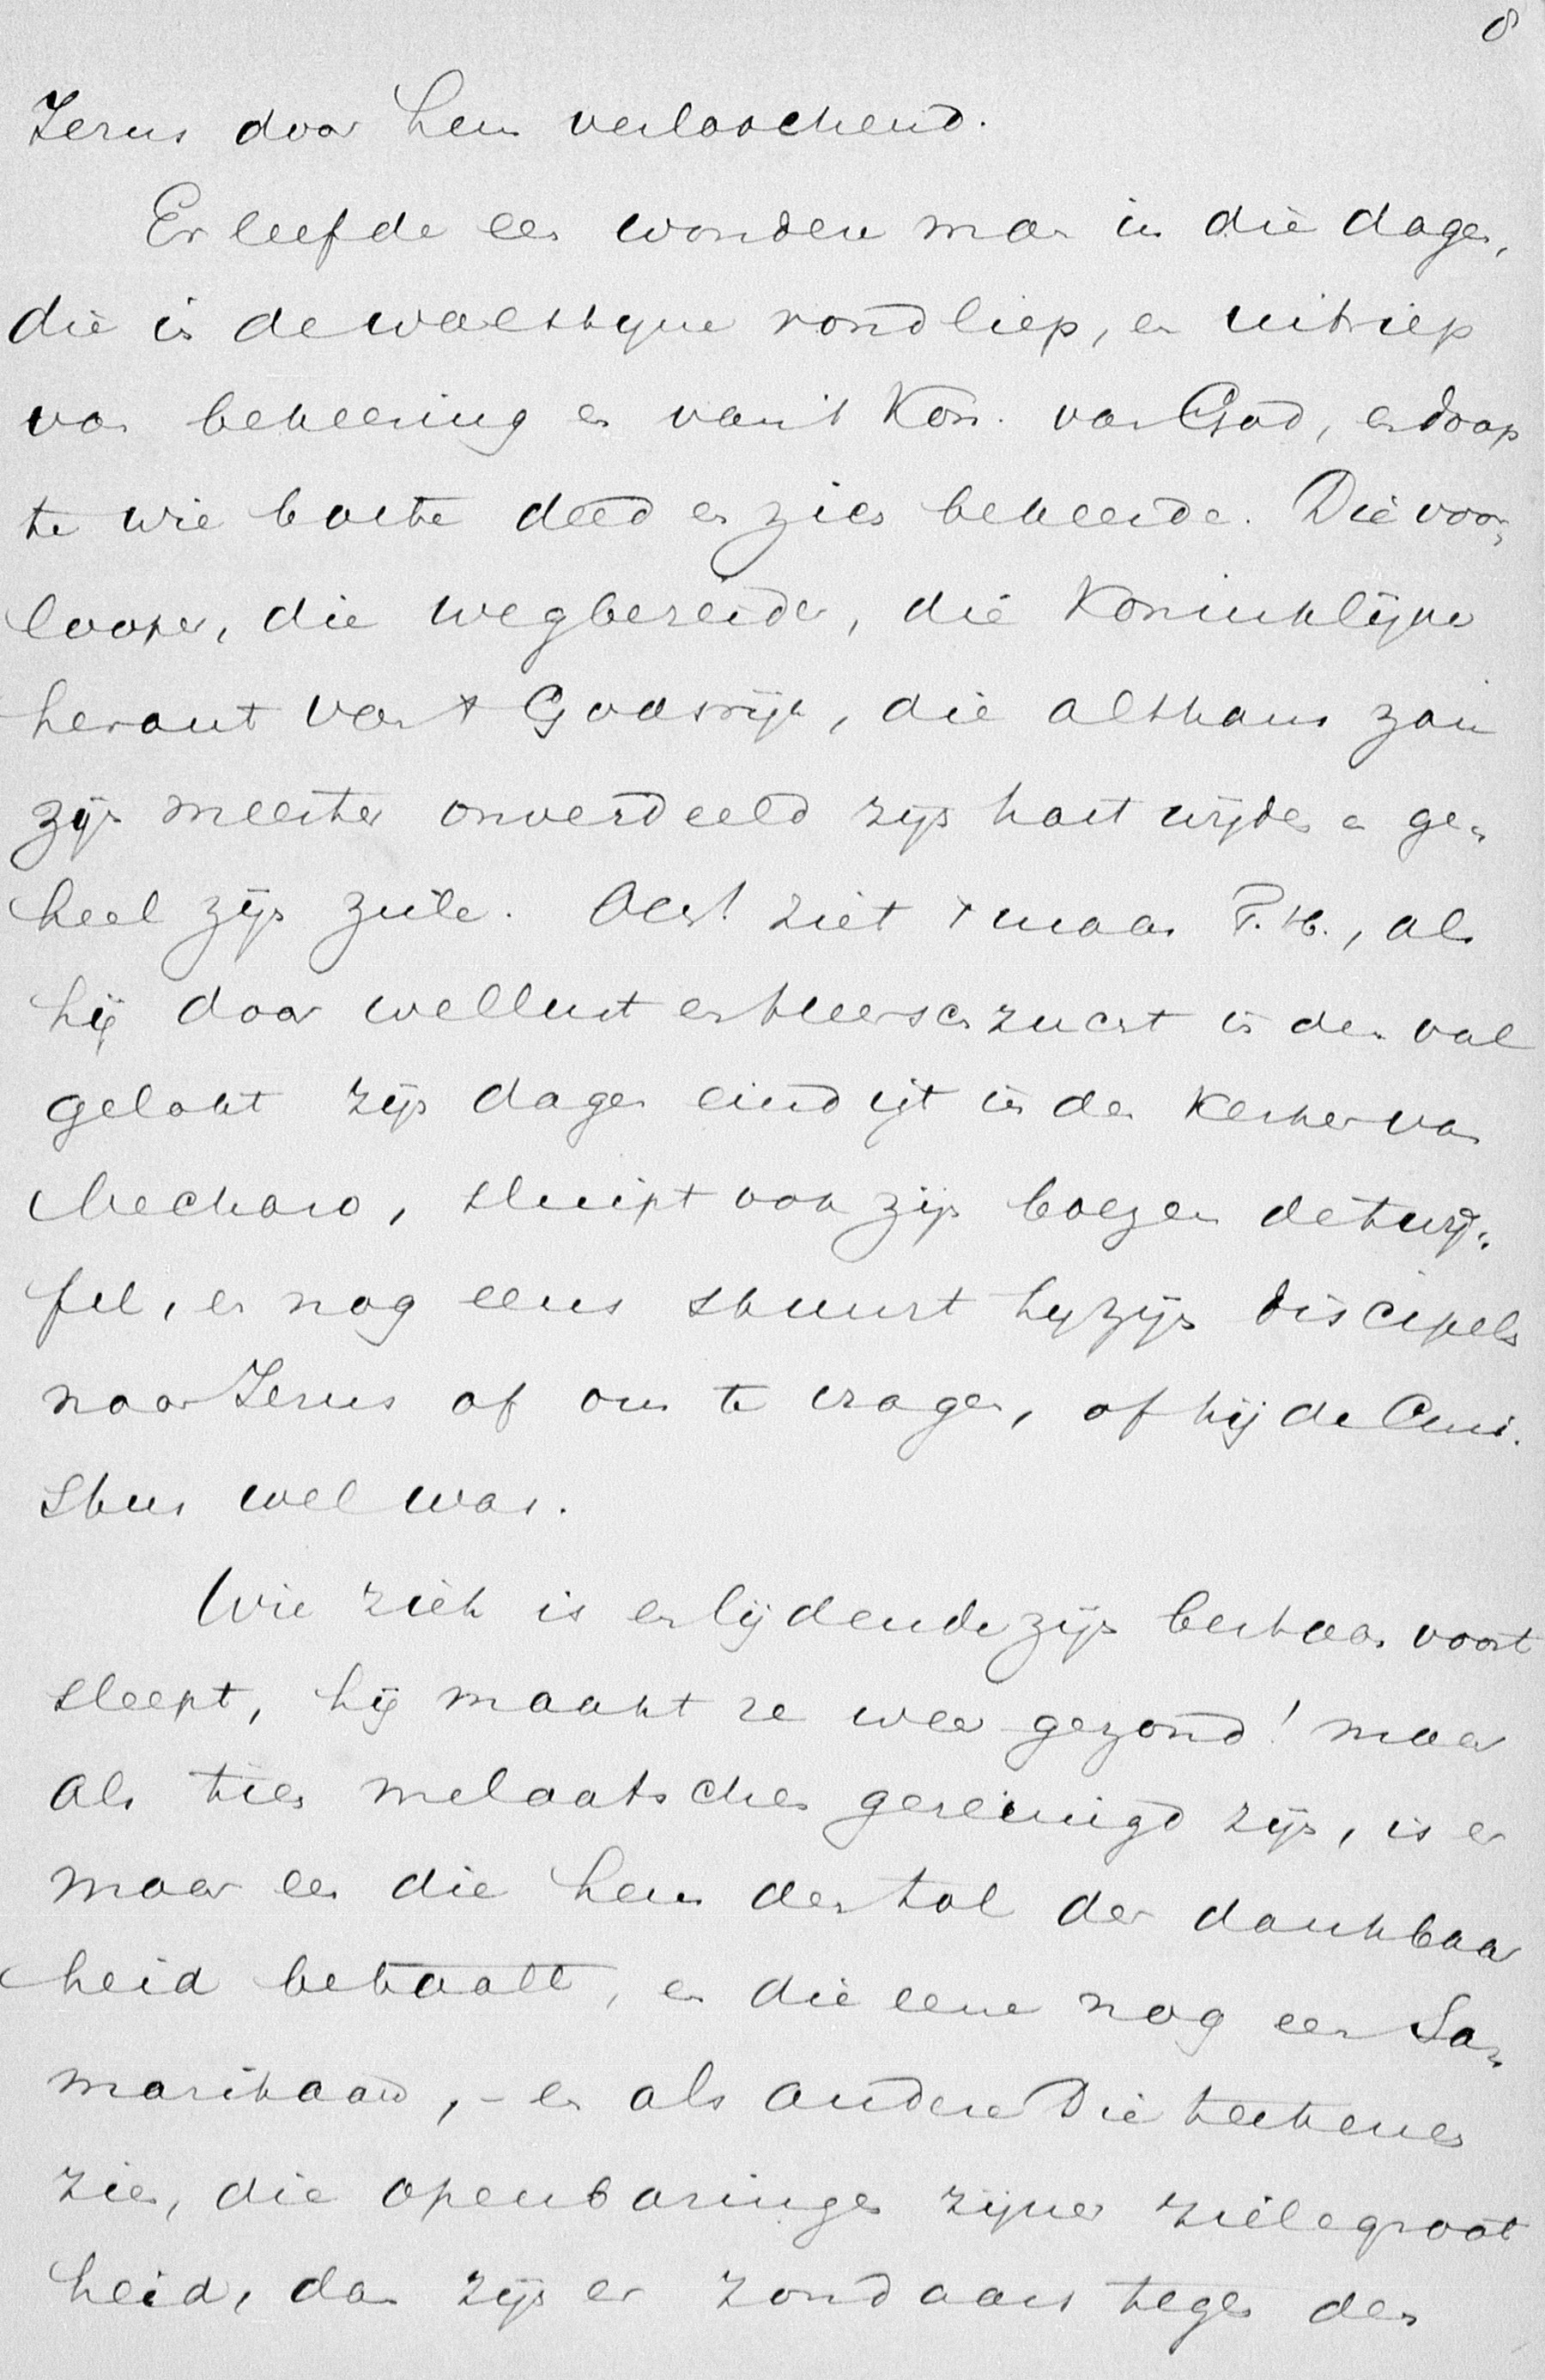 8
Jezus door hem verloochend.
Er leefde een wonder man in die dagen,
die in de woestijne rondliep, en uitriep
van bekeering en van 't Kon. van God, en doop
te wie boete deed en zich bekeerde. Die voor„
looper, die wegbereider, die Koninklijke
heraut van 't Godsrijk, die althans zou
zijn meester onverdeeld zijn hart wijden en ge„
heel zijn ziele. Ach! ziet 't maar T. H., als
hij door wellust en heerschzucht in den val
gelokt zijn dagen eindigt in den Kerker van
Mecharo, sluipt ook zijn boezem de twij„
fel, en nog eens stuurt hij zijn discipels
naar Jezus af om te vragen, of hij de Chri„
stus wel was.
Wie ziek is en lijdende zijn bestaan voort
sleept, hij maakt ze weer gezond! maar
als tien melaatschen gereinigd zijn, is er
maar een die hem den tol der dankbaar
heid betaalt, en die eene nog een Sa„
maritaan, - en als andere Die teekenen
zien, die openbaringen zijner zielegroot
heid, dan zijn er zondaars tegen den